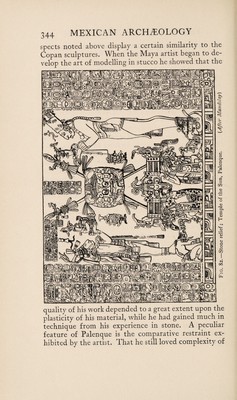 344 MEXICAN ARCHÆOLOGY
spects noted above display a certain similarity to the
Copan sculptures. When the Maya artist began to de-
velop the art of modelling in stucco he showed that the
FIG. 82.—Stone relief; Temple of the Sun, Palenque.
(After Maudslay)
quality of his work depended to a great extent upon the
plasticity of his material, while he had gained much in
technique from his experience in stone. A peculiar
feature of Palenque is the comparative restraint ex-
hibited by the artist. That he still loved complexity of